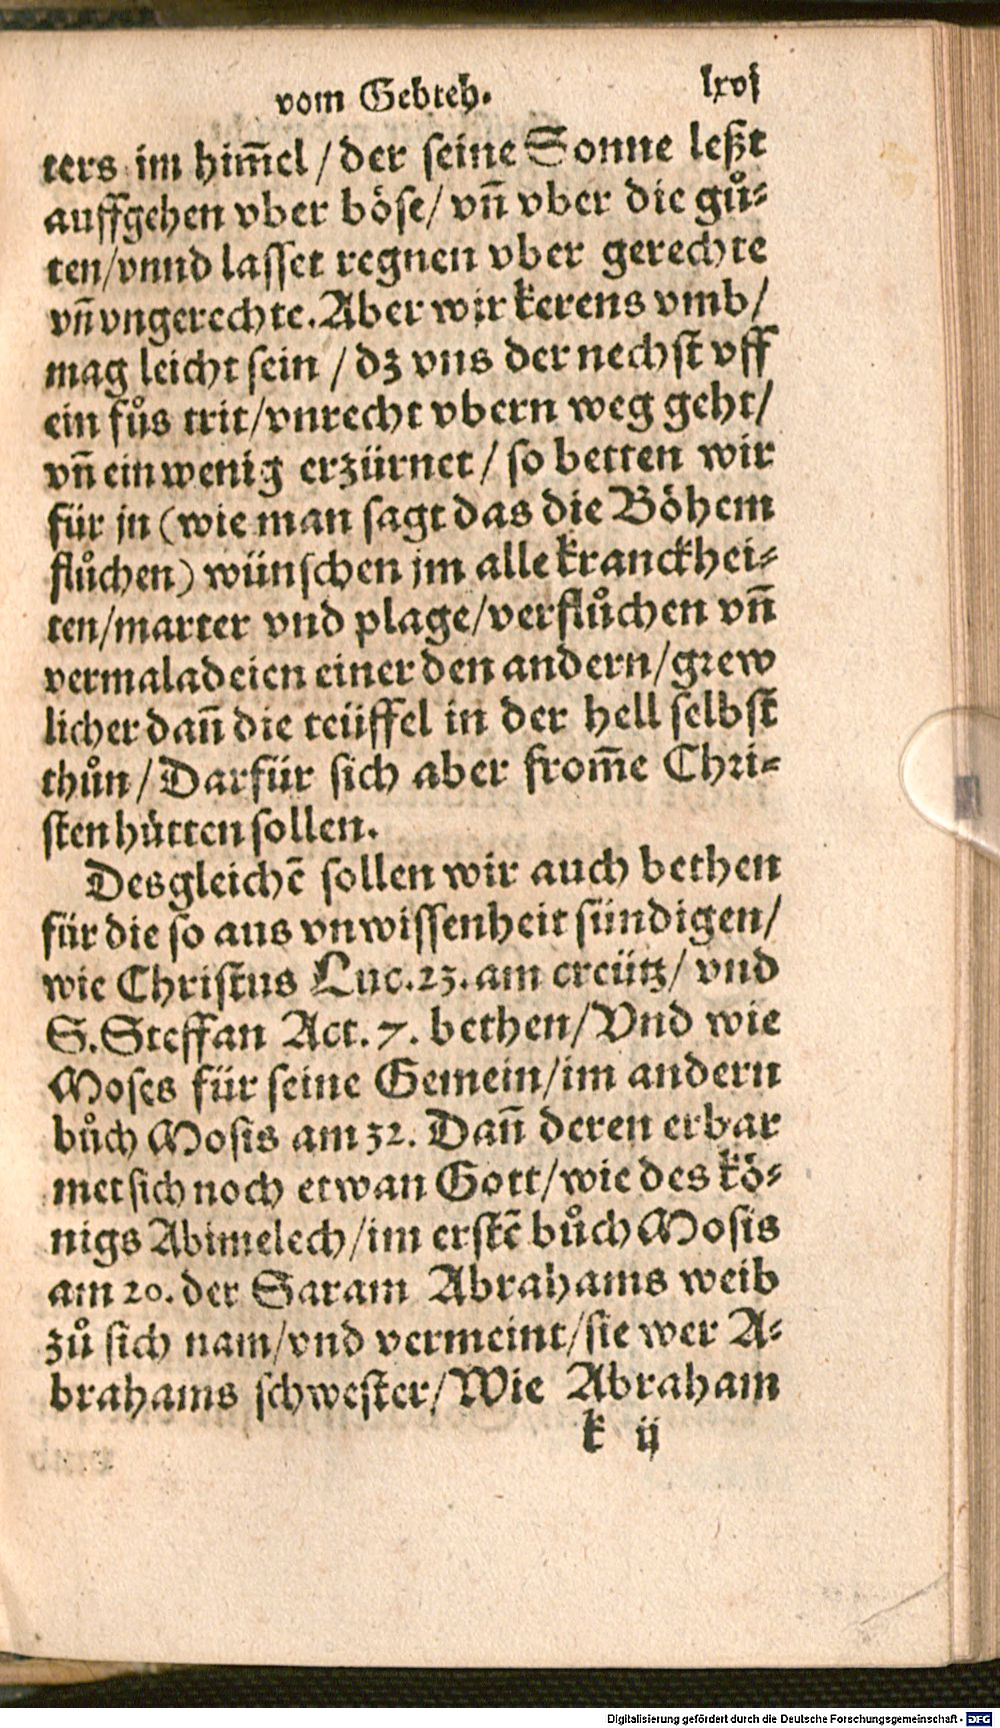 vom Gebteh. lxvj
ters im him̃el / der seine Sonne leßt
auffgehen vber böse / vñ vber die gů⸗
ten / vnnd lasset regnen vber gerechte
vñ vngerechte. Aber wir kerens vmb /
mag leicht sein / dz vns der nechst vff
ein fůs trit / vnrecht vbern weg geht /
vñ ein wenig erzürnet / so betten wir
für jn (wie man sagt das die Böhem
flůchen) wünschen jm alle kranckhei⸗
ten / marter vnd plage / verflůchen vñ
vermaladeien einer den andern / grew
licher dañ die teüffel in der hell selbst
thůn / Darfür sich aber from̃e Chri⸗
sten hütten sollen.
Desgleichẽ sollen wir auch bethen
für die so aus vnwissenheit sündigen /
wie Christus Luc. 23. am creütz / vnd
S. Steffan Act. 7. bethen / Vnd wie
Moses für seine Gemein / im andern
bůch Mosis am 32. Dañ deren erbar
met sich noch etwan Gott / wie des kö⸗
nigs Abimelech / im erstẽ bůch Mosis
am 20. der Saram Abrahams weib
zů sich nam / vnd vermeint / sie wer A⸗
brahams schwester / Wie Abraham
k ij
Digitalisierung gefördert durch die Deutsche Forschungsgemeinschaft - DFG